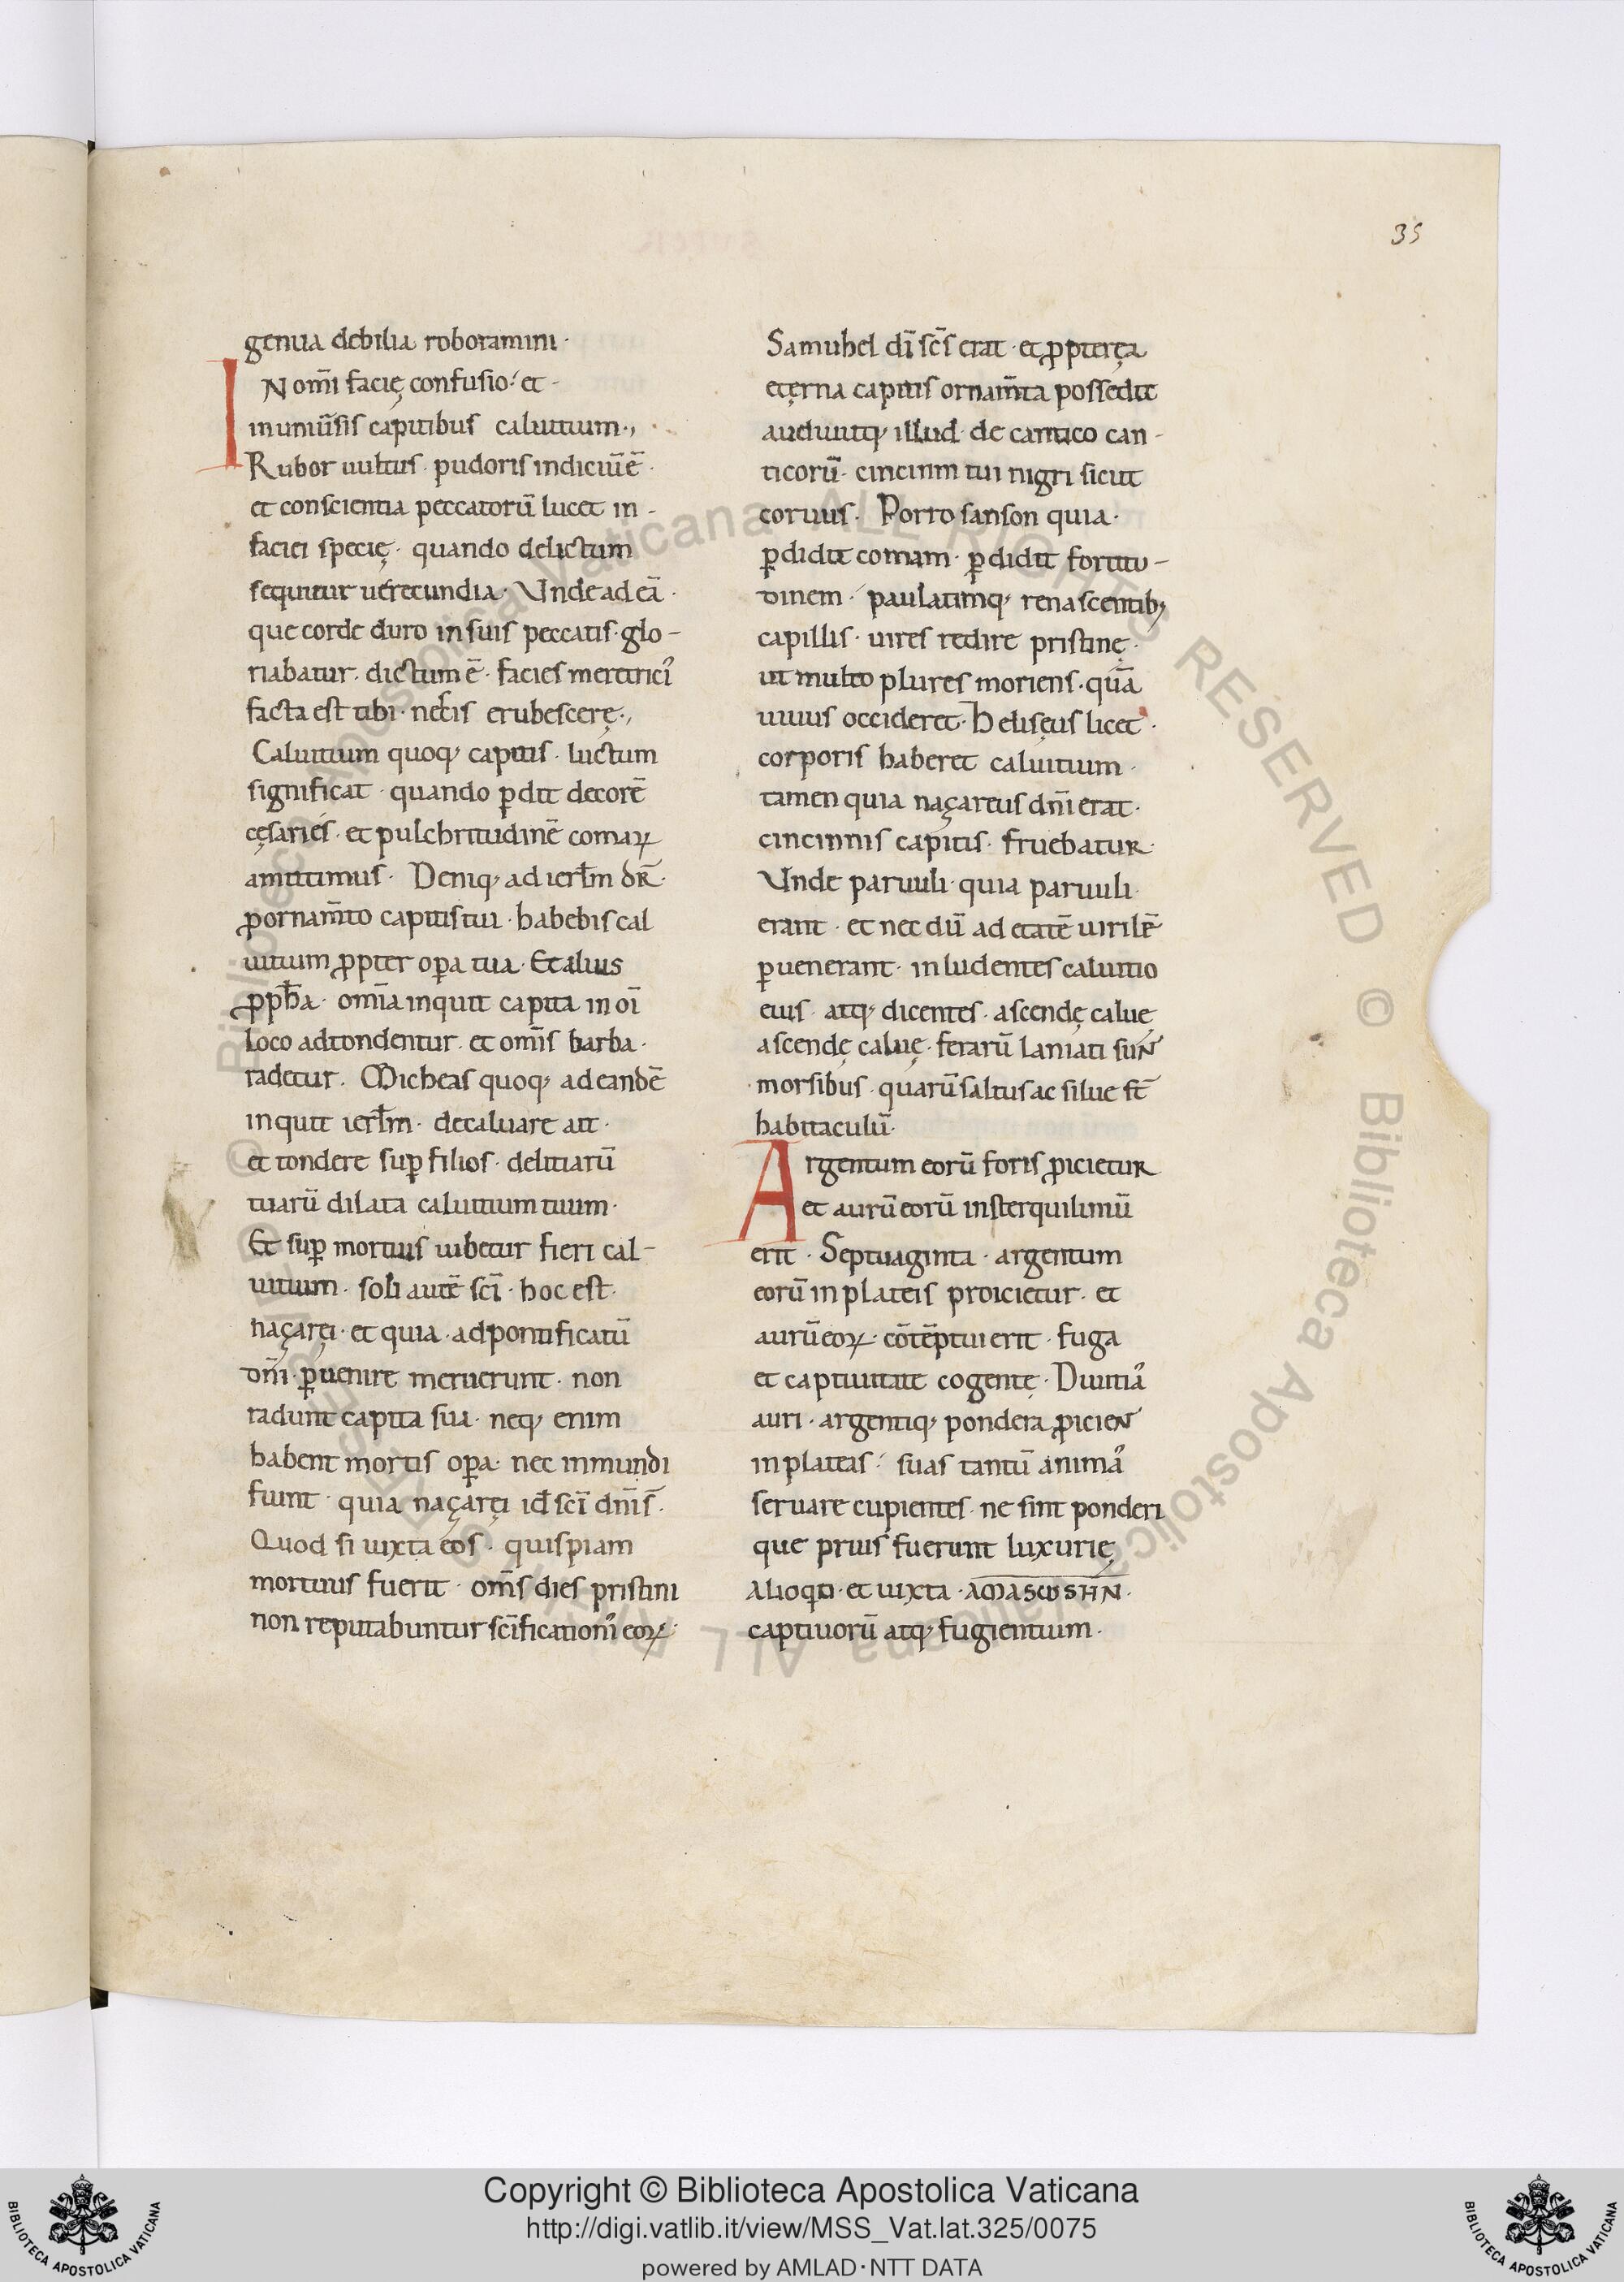 35
genua debilia roboramini·
IN om̄i facie̜ confusio· et-
in uniu̅sis capitibus caluitium·,
Rubor uultus· pudoris indiciu̅ e̅·
et conscientia peccatoru̅ lucet in-
faciei specie̜· quando delictum
sequitur uerecundia· Unde ad ea̅·
que corde duro in suis peccatis· glo-
riabatur· dictum e̅· facies meretrici᾽
facta est tibi· nec̅is erubescere̜·,
Caluitium quoq; capitis· luctum
significat· quando p̲dit decore̅
ce̜saries· et pulchritudine̅ comaꝝ
amittimus· Deniq; ad ierl̅m dr̅·
ꝓ ornam̅to capitis tui· habebis cal
uitium ꝓpter oꝑa tua· Et alius
ꝓph̅a· omi̅a inquit capita in oi̅
loco adtondentur· et om̅is barba·
radetur· Micheas quoq; ad eande̅
inquit ierl̅m· decaluare ait·
et tondere suꝑ filios· delitiaru̅
tuaru̅ dilata caluitium tuum·
Et suꝑ mortuis iubetur fieri cal-
uitium· soli aute̅ sc̅i· hoc est·
naçare̜i· et quia· ad pontificatu̅
dn̅i· ꝑuenire meruerunt· non
radunt capita sua· neq; enim
habent mortis oꝑa· nec inmundi
fiunt· quia naçare̜i id̅ sc̅i dn̅i s̅·
Quod si iuxta eos· quispiam
mortuus fuerit· om̅s dies pristini
non reputabuntur sc̅ificationi᾽ eoꝝ·
Samuhel di̅ sc̅s erat· et ꝓpterea̜
ete̜rna capitis ornam̅ta possedit
audiuitq; illud· de cantico can-
ticoru̅· cincinni tui nigri sicut
coruus· Porro sanson quia·
ꝑdidit comam· ꝑdidit fortitu-
dinem· paulatimq; renascentib;
capillis· uires redire pristine̜·
ut multo plures moriens· qua̅
uiuus occideret· Helise̜us licet·
corporis haberet caluitium·
tamen quia naçareus dn̅i erat·
cincinnis capitis· fruebatur·
Unde paruuli· quia paruuli·
erant· et nec du̅ ad etate̅ uirile̅
ꝑuenerant· inludentes caluitio
eius· atq; dicentes· ascende̜ calue̜
ascende̜ calue̜· feraru̅ laniati sunt
morsibus· quaru̅ saltus ac silue st̅
habitaculu̅·
Argentum eoru̅ foris ꝓicietur
et auru̅ eoru̅ in sterquiliniu̅
erit· Septuaginta· argentum
eoru̅ in plateis proicietur· et
auru̅ eoꝝ· co̅te̅ptui erit· fuga
et captiuitate cogente̜· Diuitia᾽
auri· argentiq; pondera ꝓicient
in plateas· suas tantu̅ anima᾽
seruare cupientes· ne sint ponderi
que prius fuerunt luxurie̜
Alioq̅ti· et iuxta· AMASCωSHN·
captiuoru̅ atq; fugientium·
Copyright © Biblioteca Apostolica Vaticana
http://digi.vatlib.it/view/MSS_Vat.lat.325/0075
powered by AMLAD·NTT DATA
BIBLIOTECA APOSTOLICA VATICANA
BIBLIOTECA APOSTOLICA VATICANA